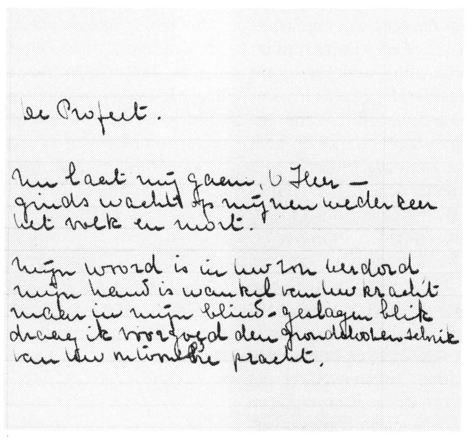 de Profeet.
Nu laat mij gaen, O Heer —
ginds wacht op mijnen wederkeer
het volk en mort.
Mijn woord is in uw zon verdord
mijn hand is wankel van uw kracht
maar in mijn blind-geslagen blik
draag ik voorgoed den grondeloozen schrik
van uw pracht.